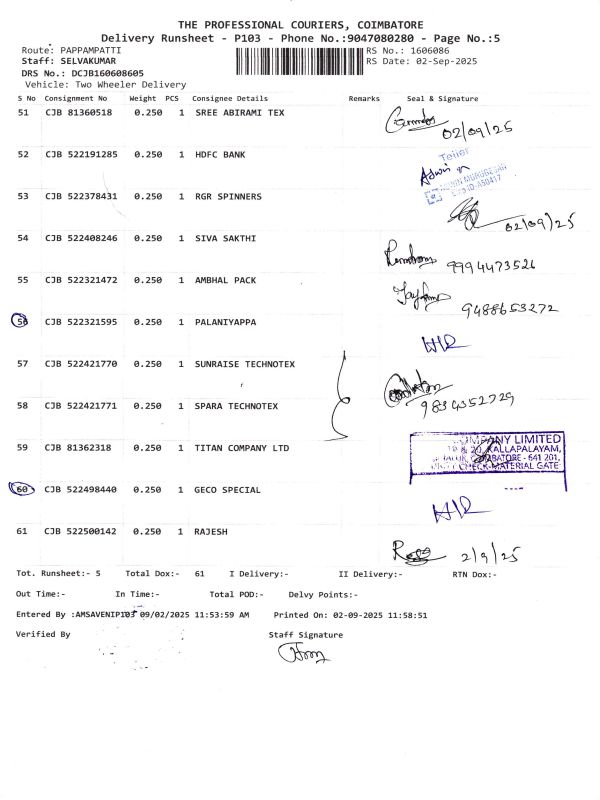 THE PROFESSIONAL COURIERS, COIMBATORE
Delivery Runsheet - P103 - Phone No.:9047080280 - Page No.:5
Route: PAPPAMPATTI
RS No.: 1606086
Staff: SELVAKUMAR
RS Date: 02-Sep-2025
DRS No.: DCJB160608605
Vehicle: Two Wheeler Delivery
S No Consignment No Weight PCS Consignee Details Remarks Seal & Signature
51 CJB 81360518 0.250 1 SREE ABIRAMI TEX
02/09/25
52 CJB 522191285 0.250 1 HDFC BANK
Teller
53 CJB 522378431 0.250 1 RGR SPINNERS
02/09/25
54 CJB 522408246 0.250 1 SIVA SAKTHI
9994473526
55 CJB 522321472 0.250 1 AMBHAL PACK
9488653272
56 CJB 522321595 0.250 1 PALANIYAPPA
57 CJB 522421770 0.250 1 SUNRAISE TECHNOTEX
58 CJB 522421771 0.250 1 SPARA TECHNOTEX
59 CJB 81362318 0.250 1 TITAN COMPANY LTD
COMPANY LIMITED
KALLAPALAYAM,
COIMBATORE - 641 201.
CHECK-MATERIAL GATE
60 CJB 522498440 0.250 1 GECO SPECIAL
61 CJB 522500142 0.250 1 RAJESH
2/9/25
Tot. Runsheet:- 5 Total Dox:- 61 I Delivery:- II Delivery:- RTN Dox:-
Out Time:- In Time:- Total POD:- Delvy Points:-
Entered By :AMSAVENIP103 09/02/2025 11:53:59 AM Printed On: 02-09-2025 11:58:51
Verified By Staff Signature